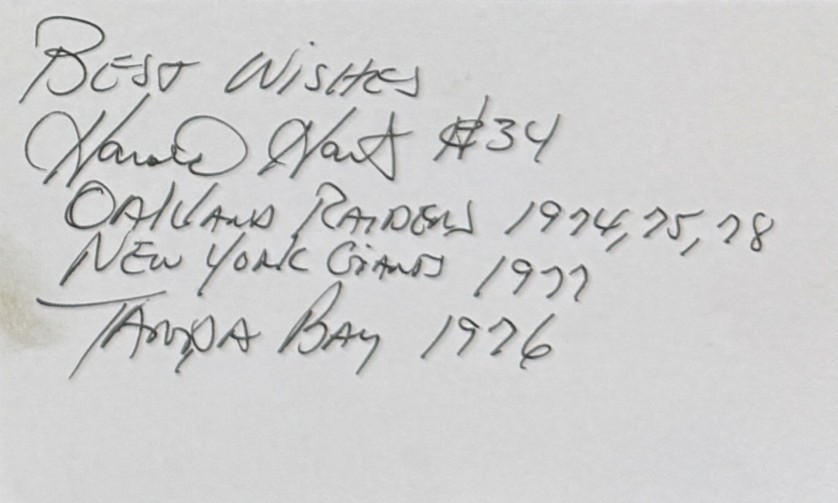 Best Wishes
Harold Hart #34
Oakland Raiders 1974, 75, 78
New York Giants 1977
Tampa Bay 1976